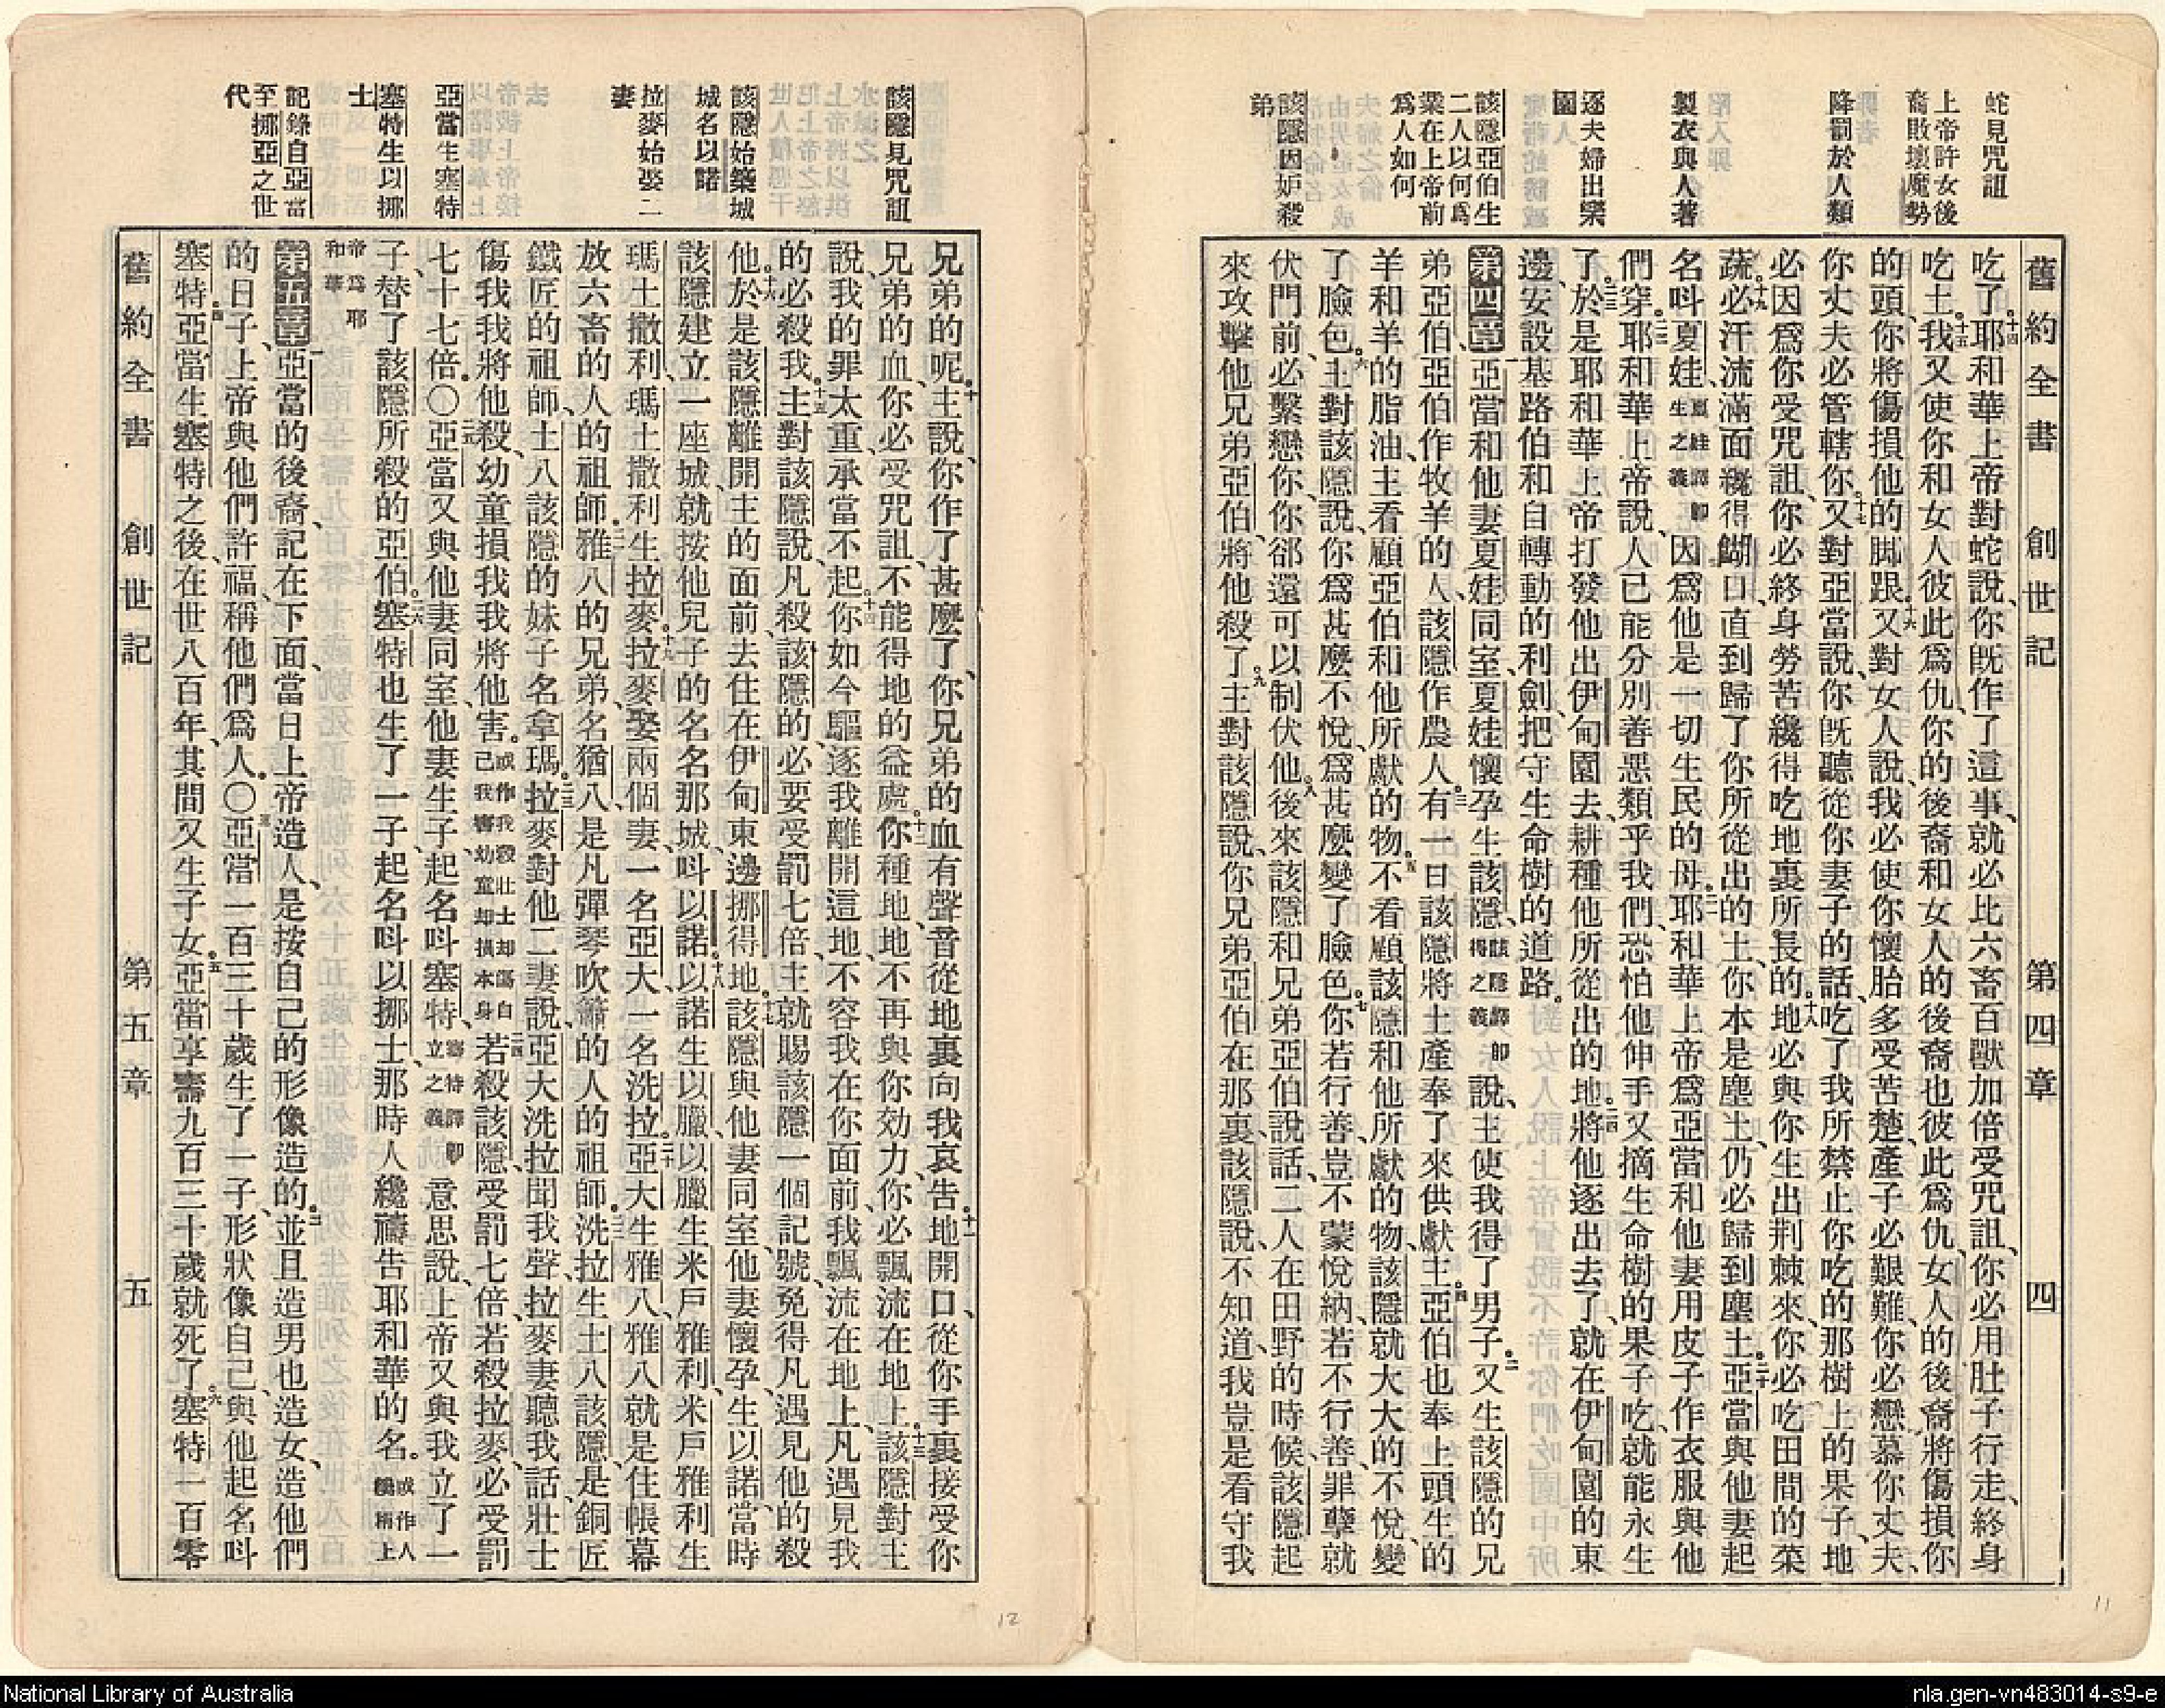 舊約全書 創世記 第四章 四
蛇見咒詛
上帝許女後
裔敗壞魔勢
降罰於人類
製衣與人著
逐夫婦出樂
園
該隱亞伯生
二人以何爲
業在上帝前
爲人如何
該隱因妒殺
弟
吃了。十四耶和華上帝對蛇說、你既作了這事、就必比六畜百獸加倍受咒詛、你必用肚子行走、終身
吃土。十五我又使你和女人彼此爲仇、你的後裔和女人的後裔也彼此爲仇、女人的後裔將傷損你
的頭、你將傷損他的脚跟。十六又對女人說、我必使你懷胎多受苦楚、產子必艱難、你必戀慕你丈夫、
你丈夫必管轄你。十七又對亞當說、你既聽從你妻子的話、吃了我所禁止你吃的那樹上的果子、地
必因爲你受咒詛、你必終身勞苦纔得吃地裏所長的。十八地必與你生出荆棘來、你必吃田間的菜
蔬。十九必汗流滿面纔得餬口、直到歸了你所從出的土、你本是塵土、仍必歸到塵土。二十亞當與他妻起
名叫夏娃、夏娃譯卽生之義因爲他是一切生民的母。二一耶和華上帝爲亞當和他妻用皮子作衣服與他
們穿。二二耶和華上帝說、人已能分別善惡類乎我們、恐怕他伸手又摘生命樹的果子吃、就能永生
了。二三於是耶和華上帝打發他出伊甸園去、耕種他所從出的地。二四將他逐出去了、就在伊甸園的東
邊、安設基路伯和自轉動的利劍、把守生命樹的道路。
第四章 一亞當和他妻夏娃同室、夏娃懷孕生該隱、該隱譯卽得之義說、主使我得了男子。二又生該隱的兄
弟亞伯、亞伯作牧羊的人、該隱作農人。三有一日該隱將土產奉了來供獻主。四亞伯也奉上頭生的
羊和羊的脂油、主看顧亞伯和他所獻的物。五不看顧該隱和他所獻的物、該隱就大大的不悅、變
了臉色。六主對該隱說、你爲甚麽不悅、爲甚麽變了臉色。七你若行善、豈不蒙悅納、若不行善、罪孽就
伏門前、必繫戀你、你郤還可以制伏他。八後來該隱和兄弟亞伯說話、二人在田野的時候、該隱起
來攻擊他兄弟亞伯、將他殺了。九主對該隱說、你兄弟亞伯在那裏、該隱說、不知道、我豈是看守我
該隱見咒詛
該隱始築城
城名以諾
拉麥始娶二
妻
亞當生塞特
塞特生以挪
士
記錄自亞當
至挪亞之世
代
兄弟的呢。十主說、你作了甚麽了、你兄弟的血有聲音從地裏向我哀告。十一地開口、從你手裏接受你
兄弟的血、你必受咒詛、不能得地的益處。十二你種地、地不再與你効力、你必飄流在地上。十三該隱對主
說、我的罪太重、承當不起。十四你如今驅逐我離開這地、不容我在你面前、我飄流在地上、凡遇見我
的必殺我。十五主對該隱說、凡殺該隱的、必要受罰七倍、主就賜該隱一個記號、免得凡遇見他的殺
他。十六於是該隱離開主的面前、去住在伊甸東邊挪得地。十七該隱與他妻同室、他妻懷孕、生以諾、當時
該隱建立一座城、就按他兒子的名名那城、叫以諾。十八以諾生以臘、以臘生米戶雅利、米戶雅利生
瑪土撒利、瑪土撒利生拉麥。十九拉麥娶兩個妻、一名亞大、一名洗拉。二十亞大生雅八、雅八就是住帳幕
放六畜的人的祖師。二一雅八的兄弟名猶八、是凡彈琴吹簫的人的祖師。二二洗拉生土八該隱、是銅匠
鐵匠的祖師、土八該隱的妹子名拿瑪。二三拉麥對他二妻說、亞大洗拉聞我聲、拉麥妻聽我話、壯士
傷我我將他殺、幼童損我我將他害。或作我殺壯士却傷自己我害幼童却損本身二四若殺該隱、受罰七倍、若殺拉麥、必受罰
七十七倍。〇二五亞當又與他妻同室、他妻生子、起名叫塞特、塞特譯卽立之義意思說、上帝又與我立了一
子、替了該隱所殺的亞伯。二六塞特也生了一子、起名叫以挪士、那時人纔禱告耶和華的名。或作人纔稱上
帝爲耶和華
第五章 一亞當的後裔、記在下面、當日上帝造人、是按自己的形像造的。二並且造男也造女、造他們
的日子、上帝與他們許福、稱他們爲人。〇三亞當一百三十歲生了一子、形狀像自己、與他起名叫
塞特。四亞當生塞特之後、在世八百年、其間又生子女。五亞當享壽九百三十歲就死了。六塞特一百零
舊約全書 創世記 第五章 五
12
11
National Library of Australia
nla.gen-vn483014-s9-e